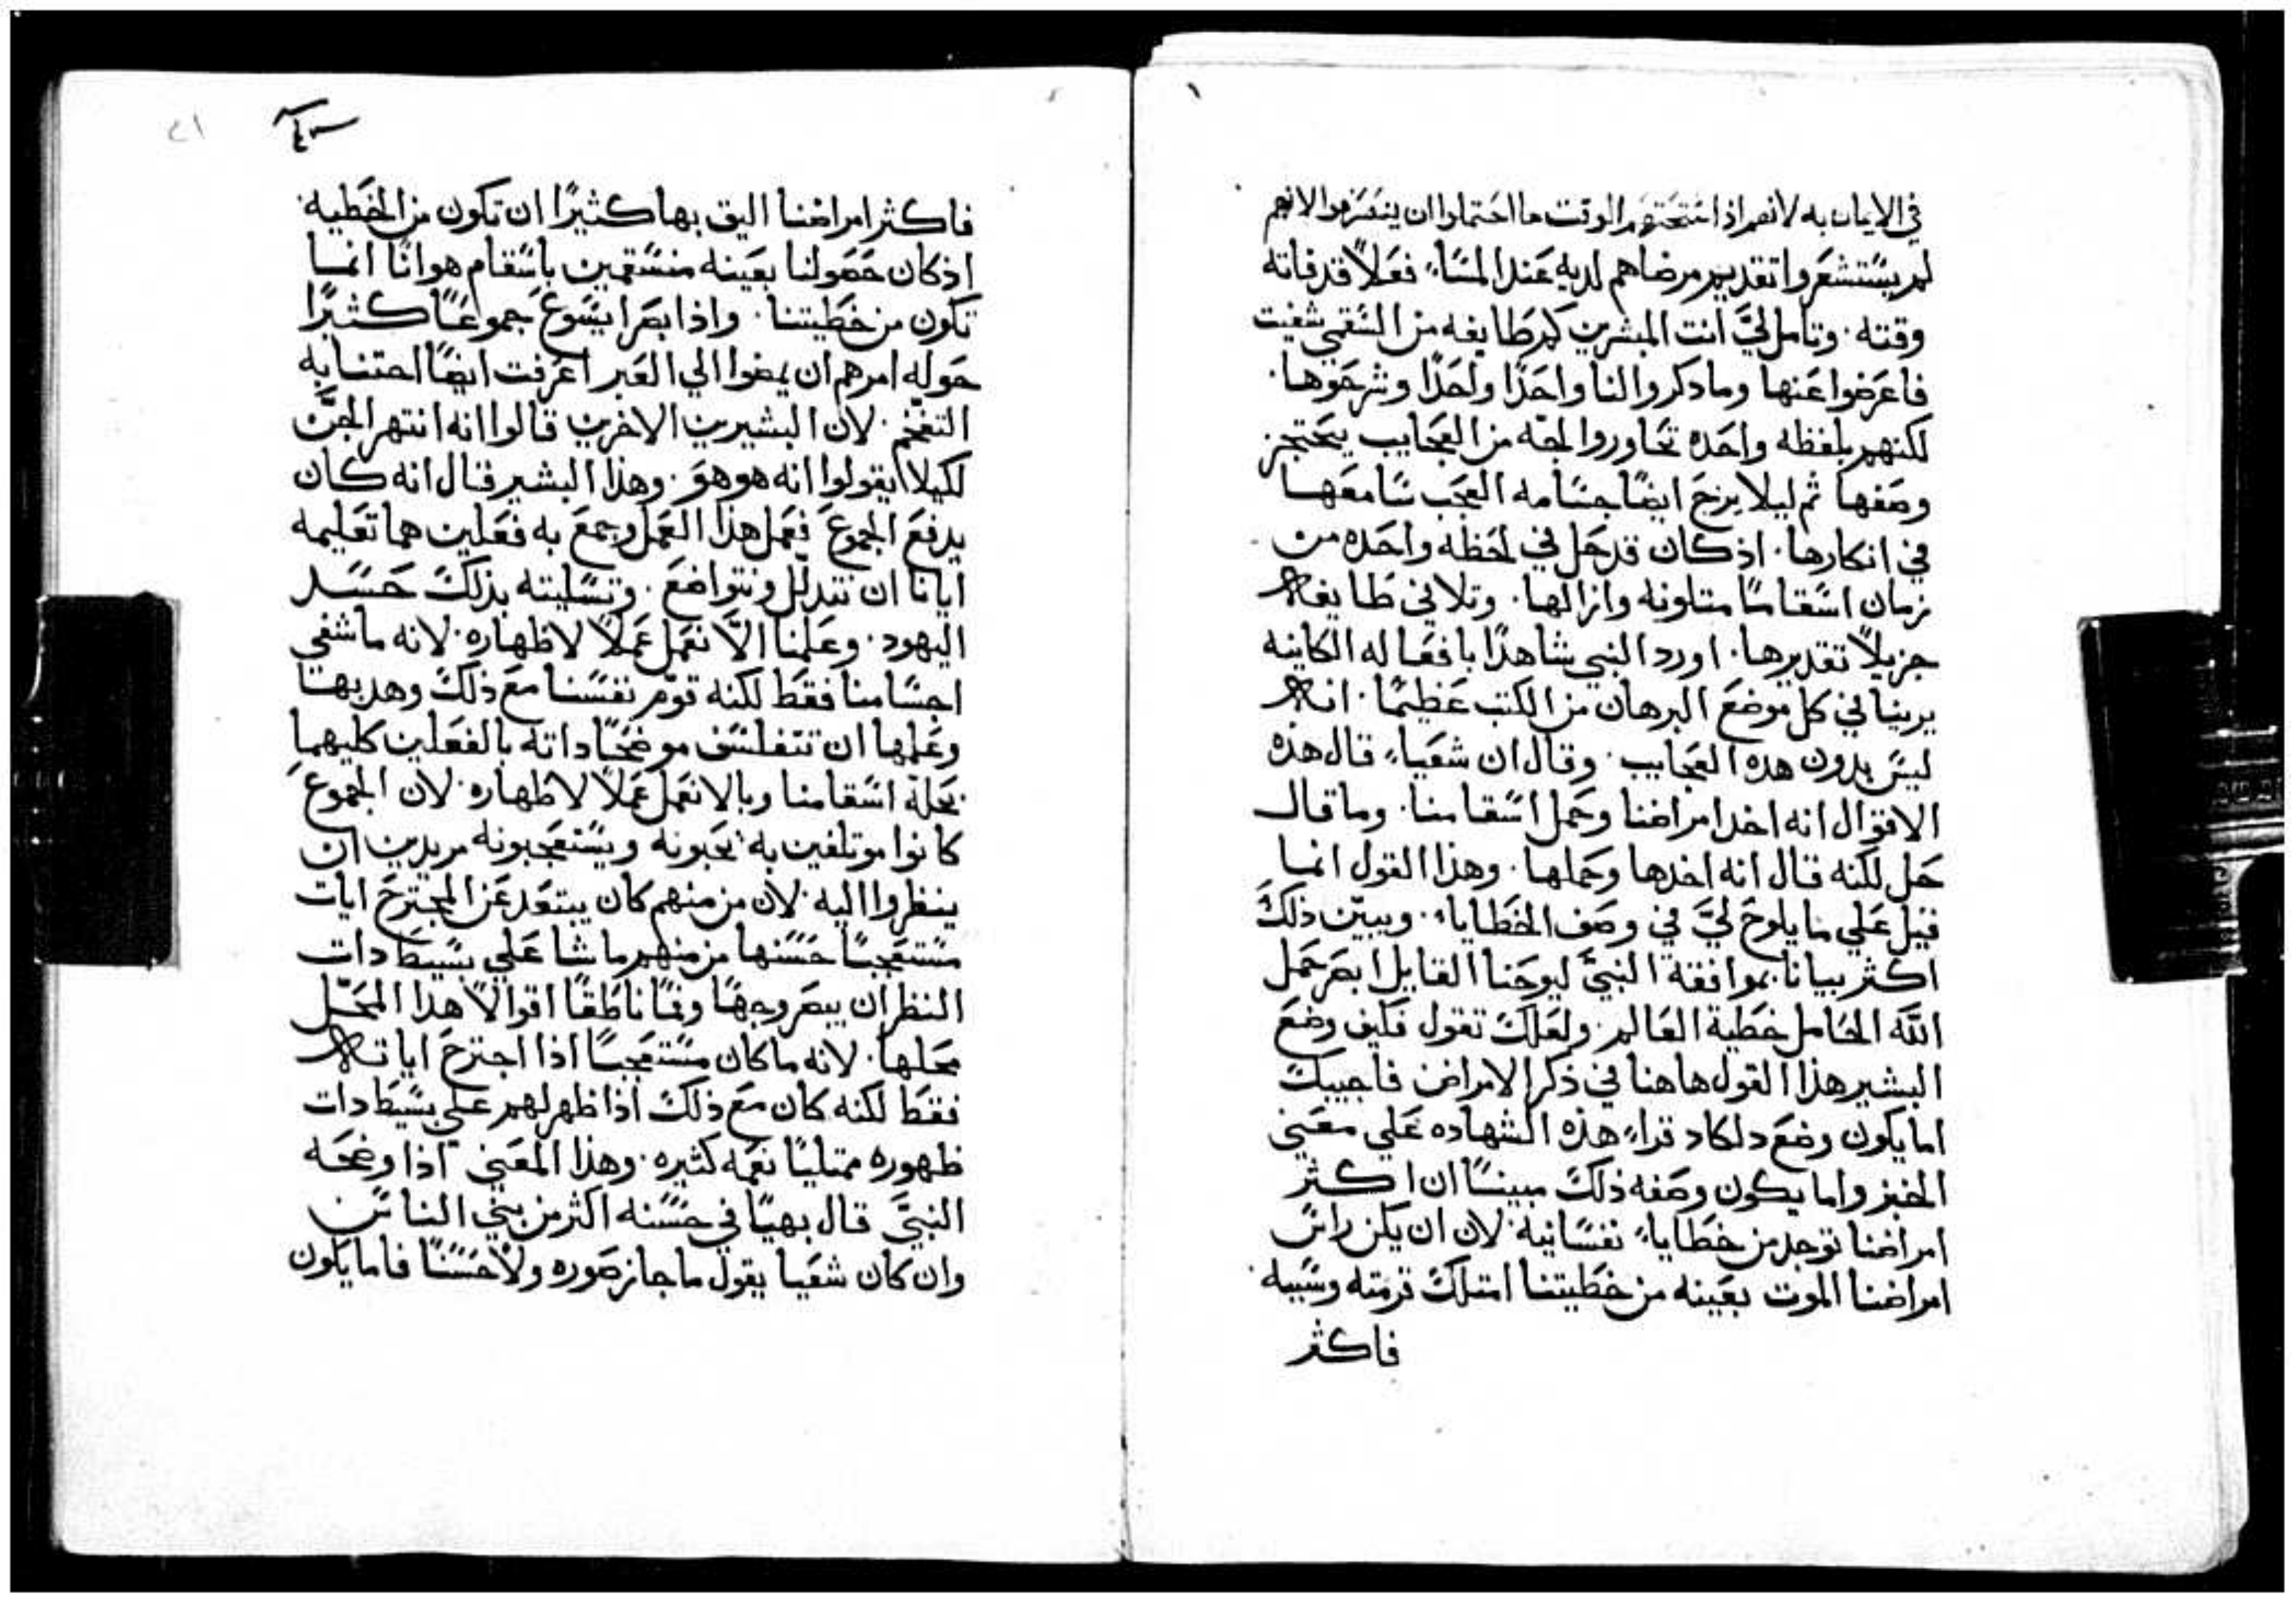 في الايمان به لانهم اذ استحتهم الوقت ما احتملوا ان ينصرفوا لانهم
لم يستشعروا تقديم مرضاهم لديه عند المساء فعلاً قد فاته
وقته. وتامل ليَّ انت المبشرين كم طايفه من السقمي شفيت
فاعرضوا عنها وما دكروا لنا واحدًا واحدًا وشرحوها.
لكنهم بلفظه واحده تجاوروا لجه من العجايب يحتجز
وصفها ثم ليلا يزج ايضًا جسامه العجب سامعها
في انكارها. اذ كان قد حل في لحظه واحده من
زمان اسقامًا متلونه وازالها. وتلافي طايفه
جزيلاً تقديرها. اورد النبي شاهدًا بافعاله الكاينه
يرينا في كل موضع البرهان من الكتب عظيمًا. انه
ليس بدون هده العجايب. وقال ان شعياء قال هذه
الاقوال انه اخد امراضنا وحمل اسقامنا. وما قال
حل لكنه قال انه اخدها وحملها. وهذا القول انما
قيل علي ما يلوح ليَّ في وصف الخطايا. ويبيّن ذلك
اكثر بيانا بموافقة النبيَّ ليوحنا القايل ابصر حمل
اللّه الحامل خطية العالم. ولعلك تقول فكيف وضع
البشير هذا القول هاهنا في ذكر الامراض فاجيبك
اما يكون وضع دلكاد قراء هذه الشهاده علي معني
الخبر واما يكون وصفه ذلك مبينًا ان اكثر
امراضنا توجد من خطاياء نفسانية. لان ان يكن راس
امراضنا الموت بعينه من خطيتنا امتلك قرمته وسببه.
فاكثر
فاكثر امراضنا اليق بها كثيرًا ان تكون من الخطيه.
اذ كان حصولنا بعينه منسقمين باسقام هوانًا انما
تكون من خطيتنا. واذا بصر ايسوع جموعًا كثيرًا
حوله امرهم ان يمضوا الي العبر اعرفت ايضًا اجتنابه
التفخّم. لان البشيرين الاخرين قالوا انه انتهر الجنَّ
لكيلا يقولوا انه هو هو. وهذا البشير قال انه كان
يدفع الجموع فعمل هذا العمل وجمع به فعلين هما تعليمه
ايانا ان نتدلل ونتواضع. وتسليته بذلك حسد
اليهود. وعلمنا الاَّ نعمل عملاً لاظهاره. لانه ما شفي
اجسامنا فقط لكنه قوّم نفسنا مع ذلك وهدبها
وعلمها ان تتفلسف موضحًا داته بالفعلين كليهما
بحله اسقامنا وبالا نعمل عملاً لاظهاره. لان الجموع
كانوا موتلفين به يحبونه ويستعجبونه مريدين ان
ينظروا اليه. لان من منهم كان يبتعد عن المجترح ايات
مستعجبًا حسنها من منهم ما شا علي بسيط دات
النظر ان يبصر وجهًا وفمًا ناطقًا اقوالاً هدا المحَّل
محلها. لانه ما كان مستعجبًا اذا اجترح اياته
فقط لكنه كان مع ذلك اذا ظهر لهم علي بسيط دات
ظهوره ممتليًا نعمه كثيره. وهذا المعني اذا وضحه
النبيَّ قال بهيًا في حسنه اكثر من بني الناس
وان كان شعيا يقول ما حاز صوره ولا حسنًا فاما يكون